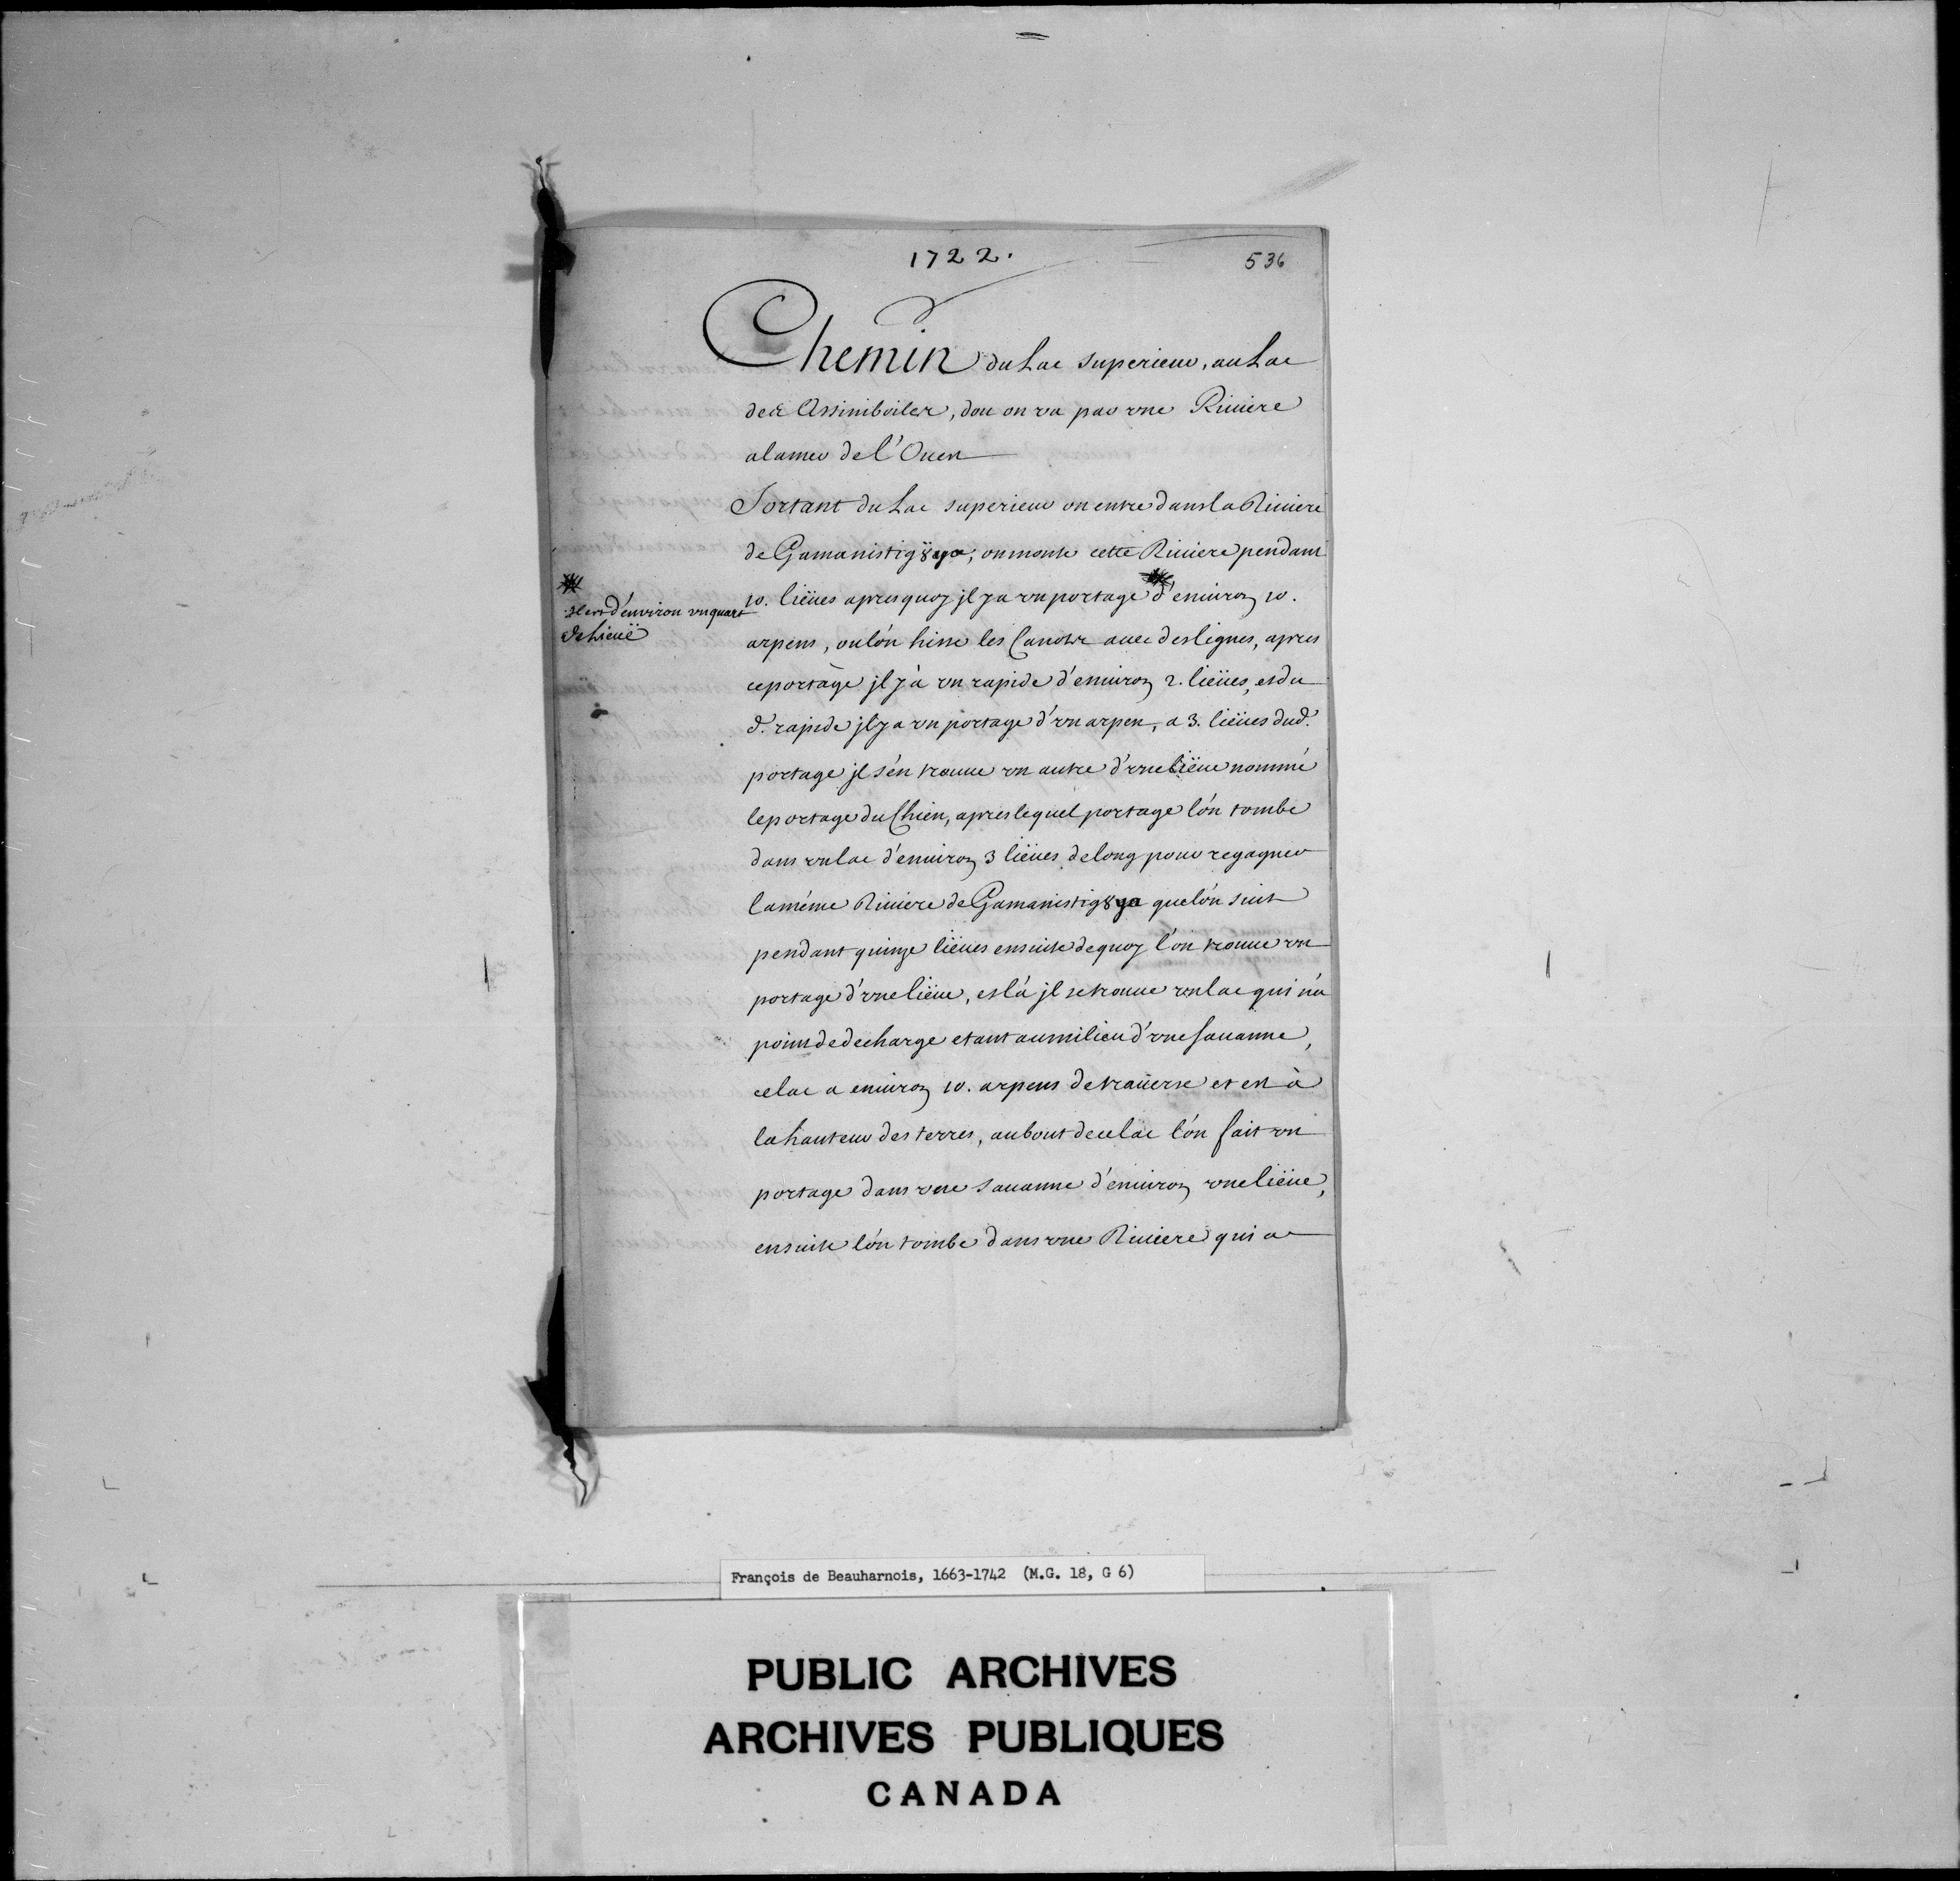 1722.
536
Chemin du Lac superieur, au Lac
des Assiniboiles, dou on va par vne Riuiere
a la mer de l'Ouest
Sortant du Lac superieur on entre dans la Riuiere
de Gamanistig8ya; on monte cette Riuiere pendant
10. lieües apres quoy jl y a vn portage * d'enuiron 10.
* Il est d'environ vn quart
de Lieuë
arpens, ou l'on hisse les Canots auec des lignes, apres
ce portage jl y à vn rapide d'enuiron 2. lieües, et du
d. rapide jl y a vn portage d'vn arpen, a 3. lieües dud.
portage jl s'en trouue vn autre d'vne lieüe nommé
le portage du Chien, apres lequel portage l'on tombe
dans vn lac d'enuiron 3 lieües de long pour regagner
la méme Riuiere de Gamanistig8ya que l'on suit
pendant quinze lieües ensuite de quoy l'on trouue vn
portage d'vne lieüe, et là jl se trouue vn lac qui n'a
point de decharge etant au milieu d'vne sauanne,
ce lac a enuiron 10. arpens de trauerse et est à
la hauteur des terres, au bout de ce lac l'on fait vn
portage dans vne sauanne d'enuiron vne lieüe,
ensuite l'on tombe dans vne Riuiere qui a
François de Beauharnois, 1663-1742 (M.G. 18, G 6)
PUBLIC ARCHIVES
ARCHIVES PUBLIQUES
CANADA